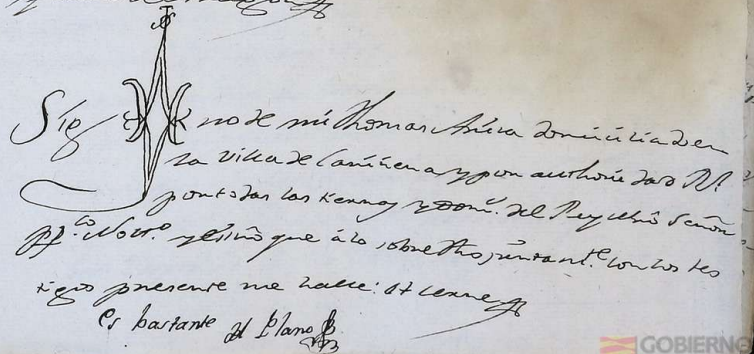 Sig no de mi Thomas domiciliado en
la Villa de Cariñena y por authoridad Rl
por todas las tierras y Domos. del Rey nro Señor
pp.co Nott.o que a lo sobredho juntamte. con los tes
tigos presente me halle: et cerre
es bastante del Plano
GOBIERNO